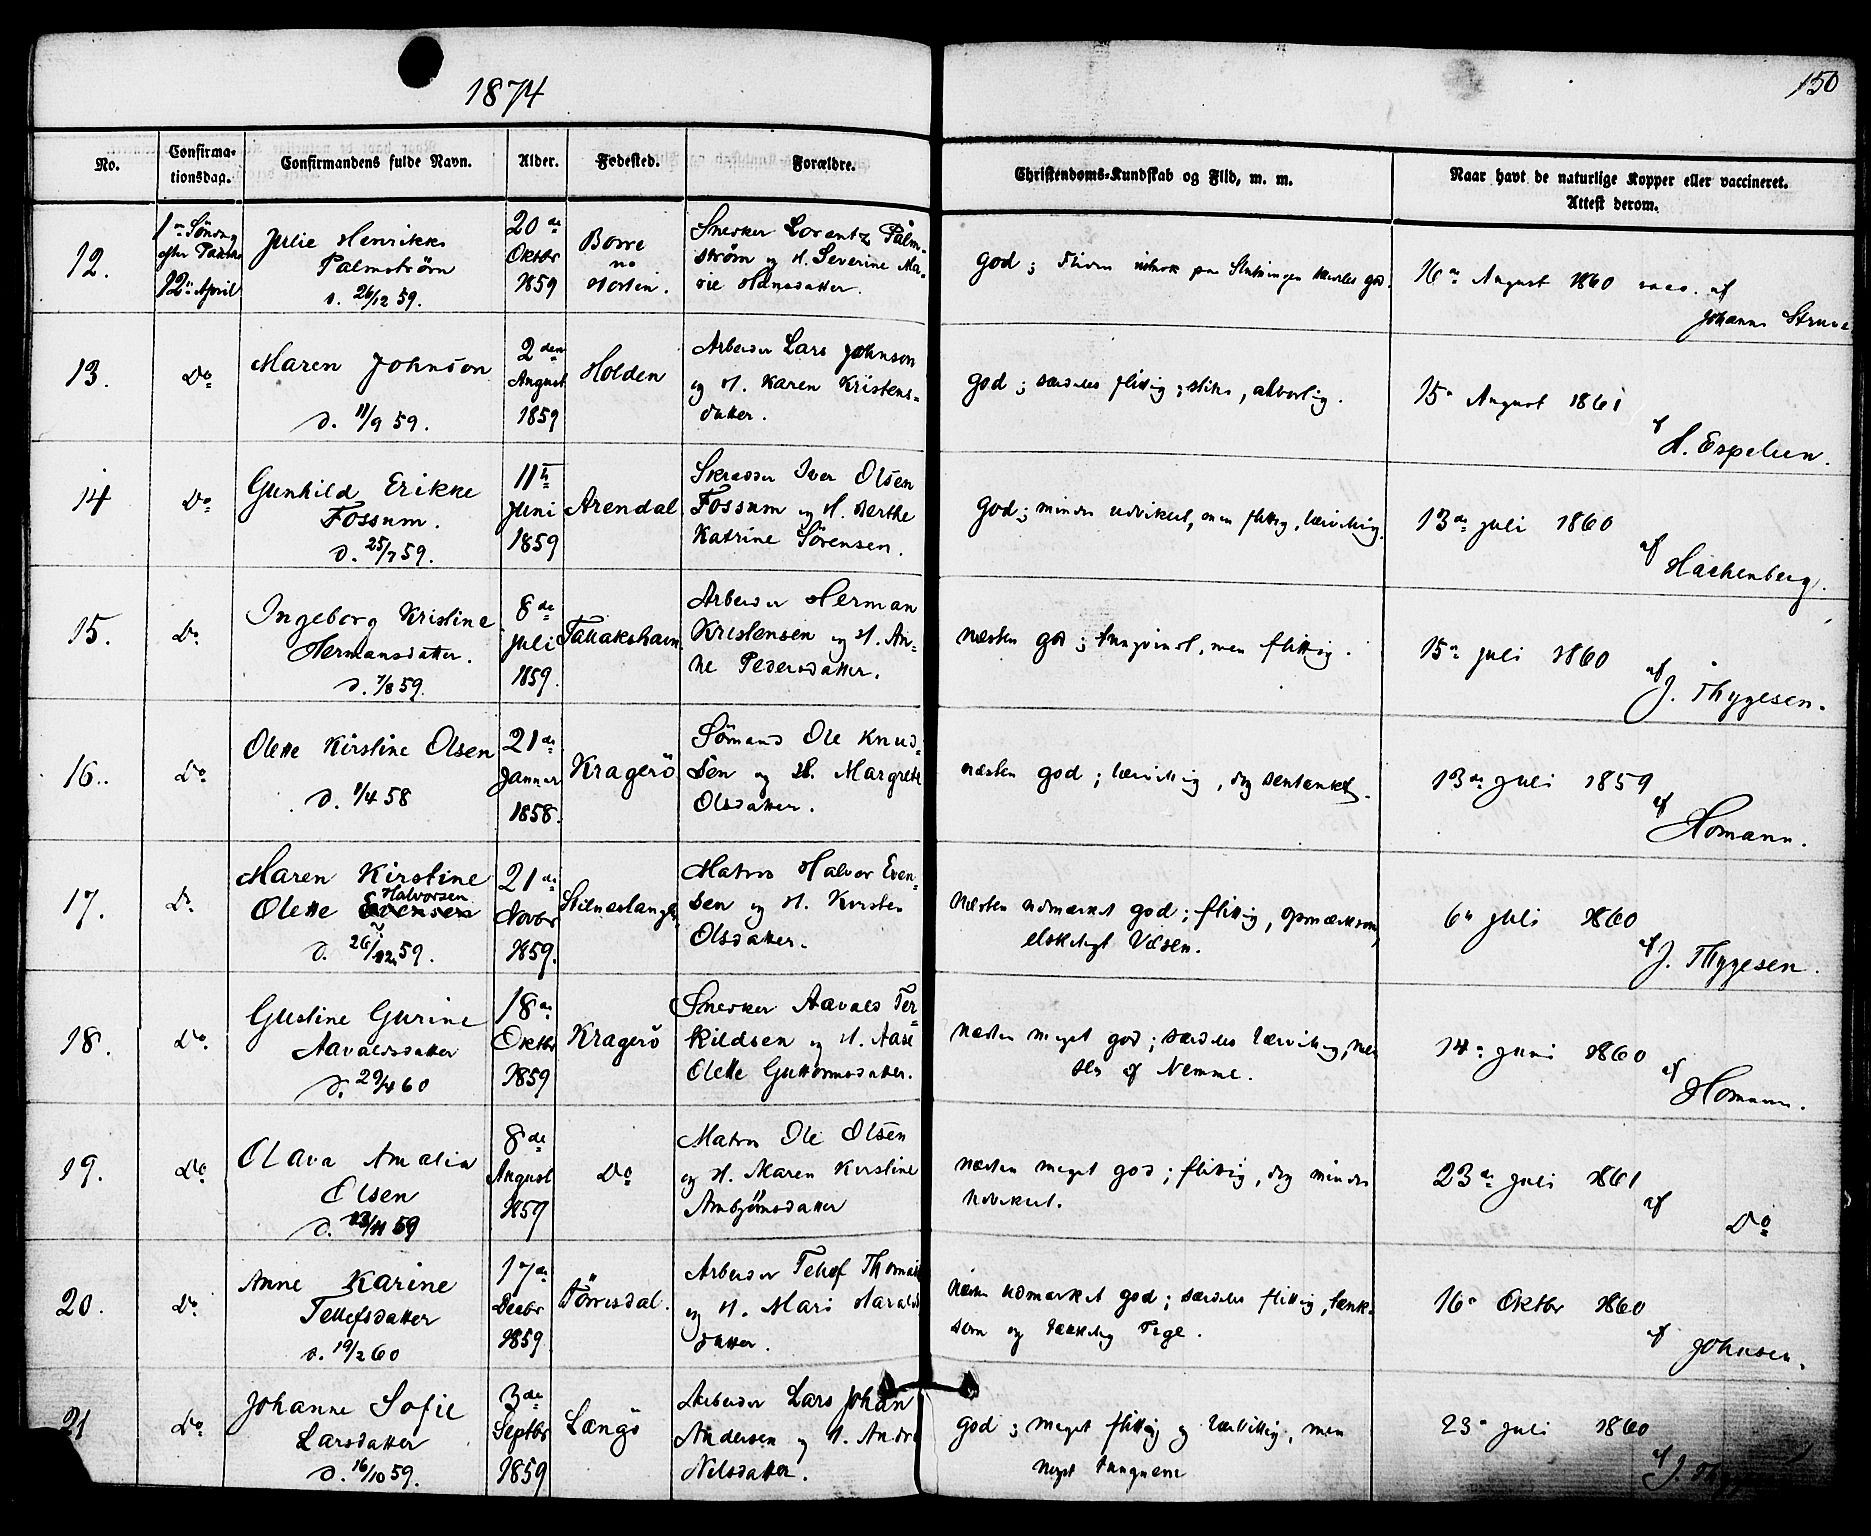 1874
150
No.
Confirma-
tionsdag.
Confirmandens fulde Navn.
Alder.
Fødested.
Forældre.
Christendoms-Kundskab og Flid, m. m.
Naar havt de naturlige Kopper eller vaccineret.
Attest derom.
12.
1ste Söndag
efter Paaske
12te April
Julie Henrikke
Palmström
d. 26/12 59.
20de
Oktbr
1859
Borre
Horten.
Snedker Lorentz Palm-
ström og H. Severine Ma-
rie Hansdatter.
god; Fliden paa Slutningen god.
16de August 1860 vacc. af
Johanne Struve
13.
Do
Maren Johnson
d. 11/9 59.
2den
August
1859
Holden
Arbeider Lars Johnson
og H. Karen Kristens-
datter.
god; særdeles flittig; stille, alvorlig.
15de August 1861
af
H. Espelien.
14
Do
Gunhild Erikke
Fossum.
d. 25/7 59.
11te
Juni
1859
Arendal
Skrædder Iver Olsen
Fossum og H. Berthe
Katrine Sörensen.
god; mindre udviklet, men flittig, lærvillig.
13de Juli 1860
af
Hachenberg.
15.
Do
Ingeborg Kristine
Hermansdatter.
d. 7/8 59.
8de
Juli
1859.
Tallakshavn
Arbeider Herman
Kristensen og H. An-
ne Pedersdatter.
næsten god; tungvindt, men flittig.
15de Juli 1860
af
J. Thygesen.
16.
Do
Olette Kirstine Olsen
d. 1/4 58
21de
Januar
1858.
Kragerö
Sömand Ole Knud-
sen og H. Margrete
Olsdatter.
næsten god; lærvillig, dog sentænkt.
13de Juli 1859
af
Homann.
17.
Do
Maren Kirstine
Halvorsen
Olette Evensen
d. 26/12 59.
21de
Novbr
1859.
Matros Halvor Even-
sen og H. Kirsten
Olsdatter.
Næsten udmærket god; flittig, opmærksom,
elskeligt Væsen.
6te Juli 1860
af J. Thygesen.
18.
Do.
Gustine Gurine
Aavaldsdatter
d. 29/4 60
18de
Oktbr
1859
Kragerö
Snedker Aavald Ter-
kildsen og H. Aase
Olette Guttormsdatter.
næsten meget god; særdeles lærvillig, men
slet af Nemme.
14de Juni 1860
af
Homann.
19.
Do
Olava Amalia
Olsen
d. 13/11 59
8de
August
1859
Do
Matros Ole Olsen
og H. Maren Kirstine
Ambjörnsdatter
næsten meget god; flittig, dog mindre
udviklet.
23de Juli 1861
af
Do
20.
Do
Anne Karine
Tellefsdatter
d. 19/2 60
17de
Decbr
1859
Törrisdal.
Arbeider Tellef Thomas
og H. Mari Harald
datter.
Næsten udmærket god; særdeles flittig, tænk-
som og tækkelig Pige.
16de Oktbr 1860
af
Johnsen.
21
Do
Johanne Sofie
Larsdatter
d. 16/10 59.
3de
Septbr
1859
Langö
Arbeider Lars Johan
Andersen og H. Andr
Nilsdatter.
god; meget flittig og lærvillig, men
noget tungnem
23de Juli 1860
af J.